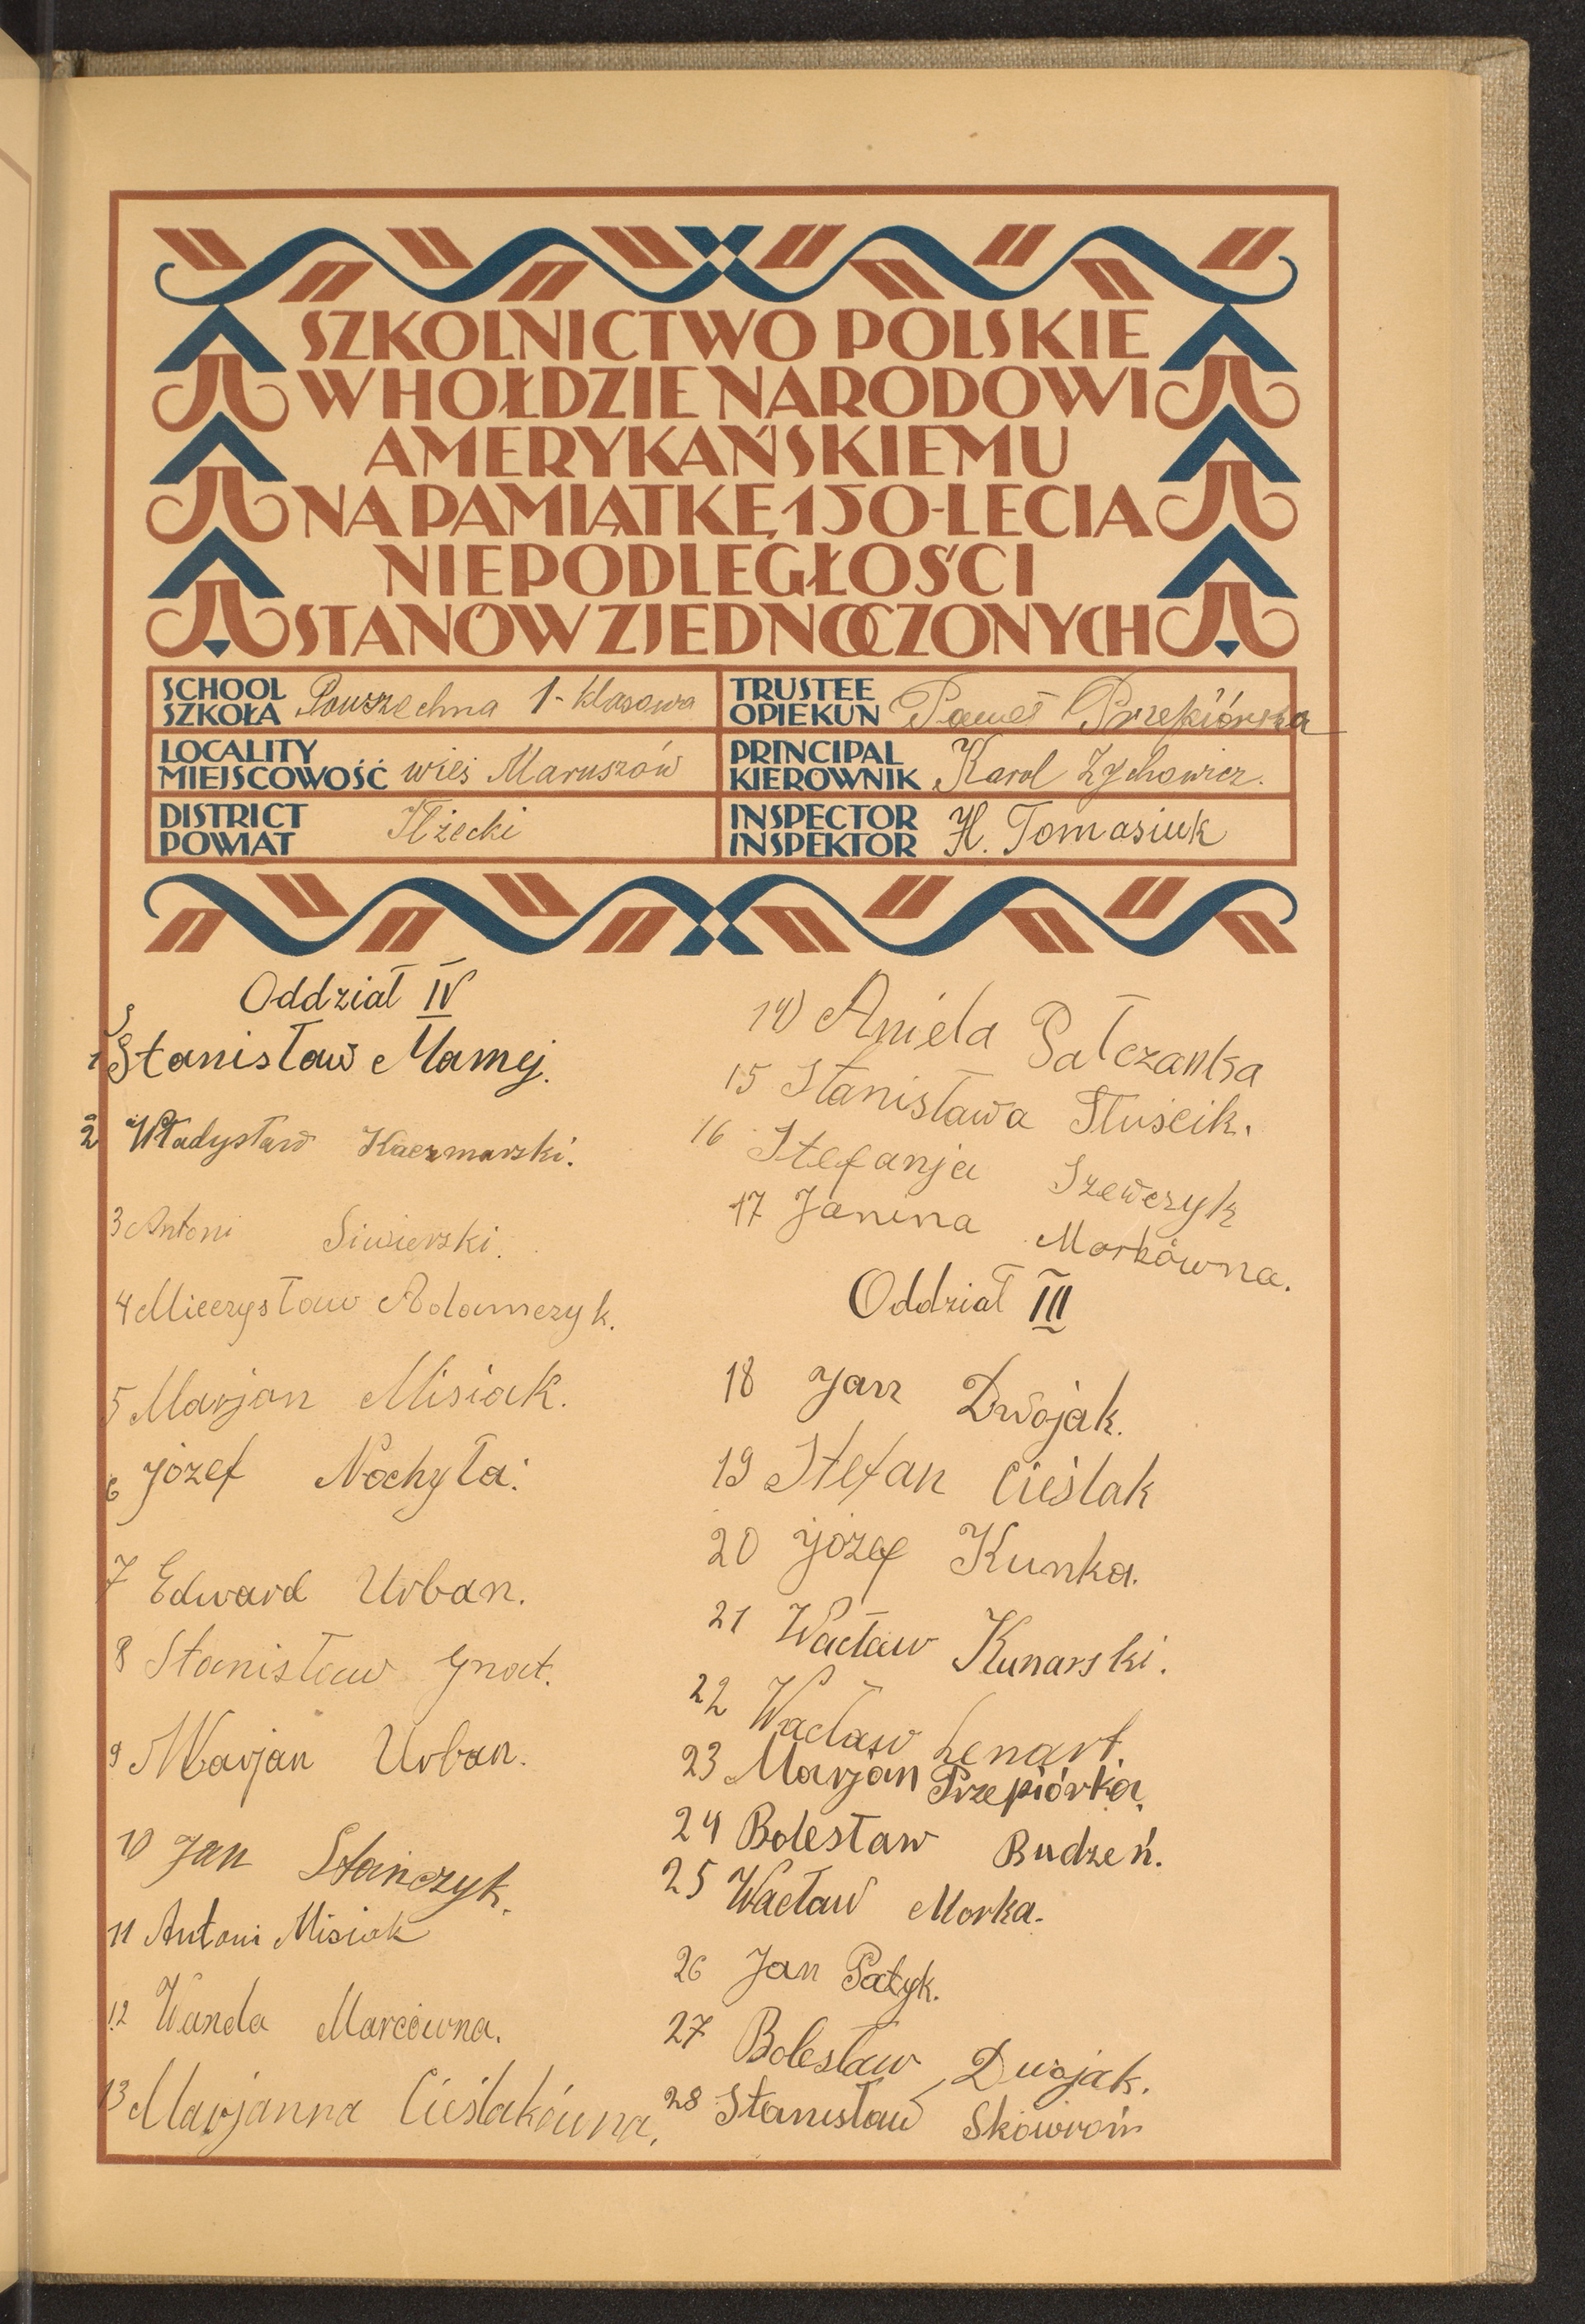 SZKOLNICTWO POLSKIE
W HOŁDZIE NARODOWI
AMERYKAŃSKIEMU
NA PAMIĄTKĘ 150-LECIA
NIEPODLEGŁOŚCI
STANÓW ZJEDNOCZONYCH
SCHOOL
SZKOŁA Powszechna 1-klasowa
TRUSTEE
OPIEKUN Paweł Przepiórka
LOCALITY
MIEJSCOWOŚĆ wieś Maruszów
PRINCIPAL
KIEROWNIK Karol Zychowicz.
DISTRICT
POWIAT Iłżecki
INSPECTOR
INSPEKTOR H. Tomasiuk
Oddział IV
1 Stanisław Mamej.
2 Władysław Kaczmarski.
3 Antoni Siwierski.
4 Mieczysław Adamczyk.
5 Marjan Misiak.
6 Józef Nochyła.
7 Edward Urban.
8 Stanisław Gnat.
9 Marjan Urban.
10 Jan Stańczyk.
11 Antoni Misiak
12 Wanda Marcówna.
13 Marjanna Cieślakówna.
14) Aniela Pałczanka
15 Stanisława Słuścik.
16 Stefanja Szewczyk
17 Janina Morkówna.
Oddział III
18 Jan Dwojak.
19 Stefan Cieślak
20 Józef Kunka.
21 Wacław Kunarski.
22 Wacław Lenart.
23 Marjan Przepiórka.
24 Bolesław Budzeń.
25 Wacław Morka.
26 Jan Patyk.
27 Bolesław Dwojak.
28 Stanisław Skowron